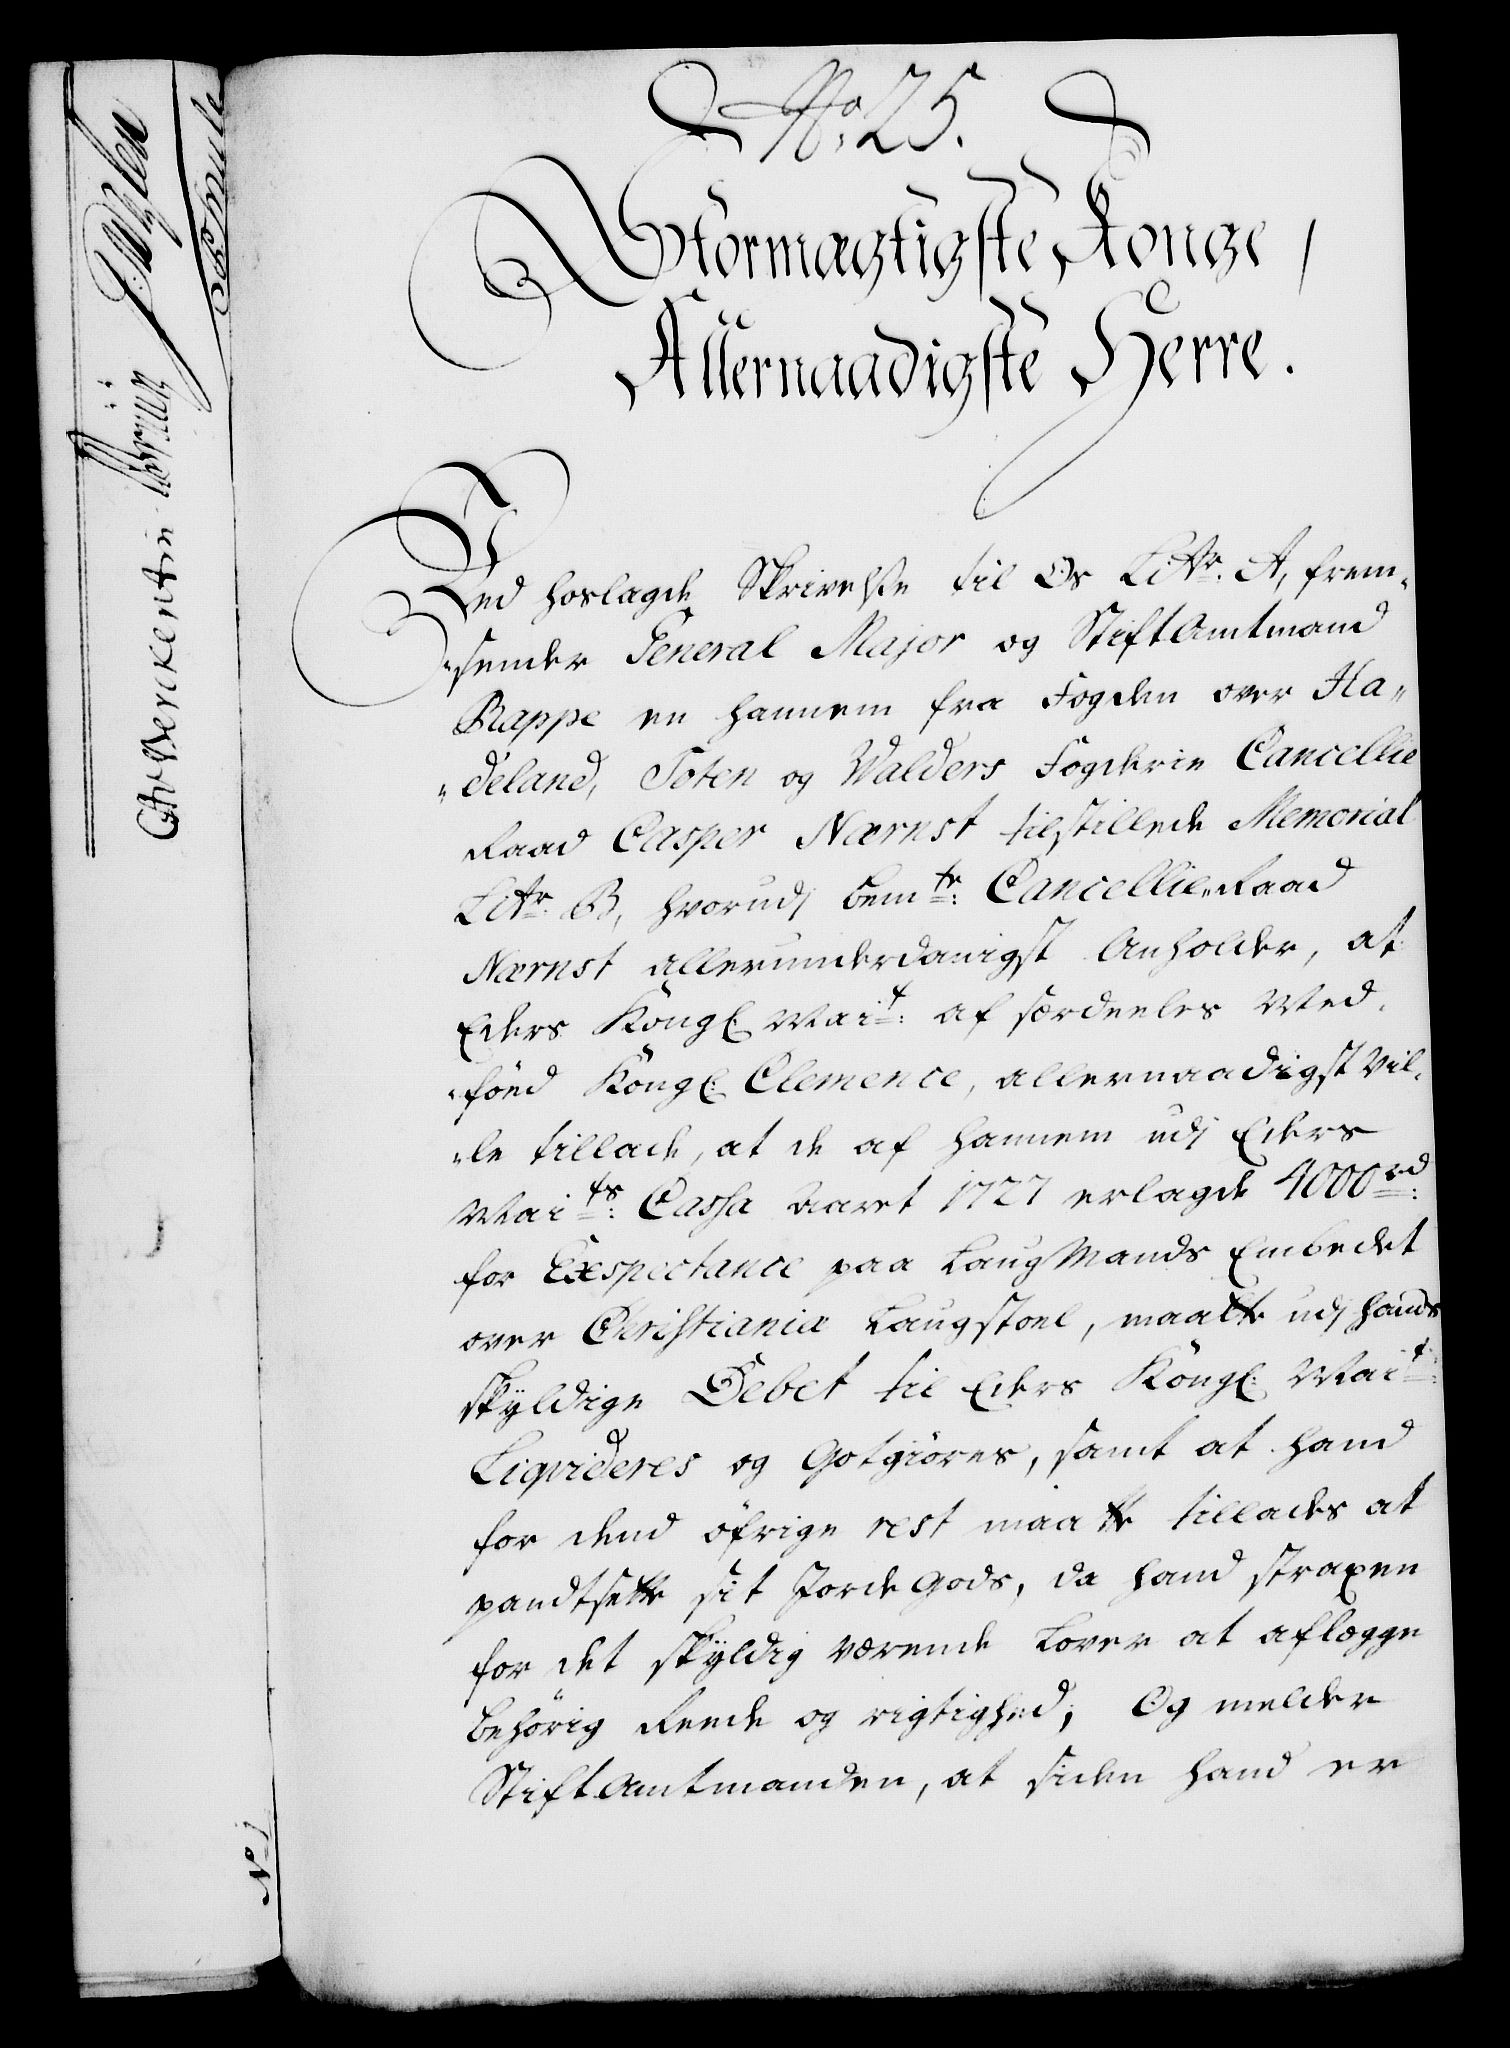 No. 25.
Stormægtigste Konge,
Allernaadigste Herre.
Ved hoslagde Skrivelse til Os Littr. A, frem-
-sender General Major og StiftAmtmand
Rappe en hannem fra Fogden over Ha-
-deland, Toten og Walders Fogderie Cancellie
Raad Casper Nærnst tilstillede Memorial
Littr. B, hvorudj bemte: Cancellie-Raad
Nærnst allerunderdanigst Anholder, at
Eders Kongl. Mait: af særdeeles Med-
-föed Kongl: Clemence, allernaadigst vil-
-le tillade, at de af hannem udj Eders
Maits: Cassa Aaret 1727 erlagde 4000 rd:
for Exspectance paa LaugMands Embedet
over Christiania Laugstoel, maatte udj hands
skyldige Debet til Eders Kongl: Mait:
Liqvideres og Gotgiöres, samt at hand
for dend öfrige rest maatte tillades at
pandtsette sit Jorde Gods, da hand straxen
for det skyldig værende Lover at aflægge
behörig Reede og rigtighed; Og melder
StiftAmtmanden, at siden hand er
CAvBerckentin
No 1